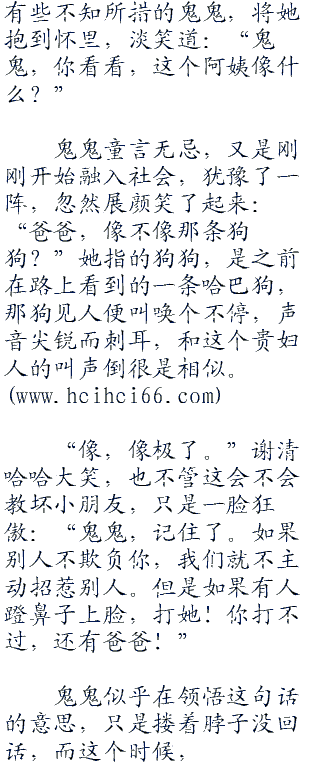 有些不知所措的鬼鬼，将她
抱到怀里，淡笑道：“鬼
鬼，你看看，这个阿姨像什
么？”
鬼鬼童言无忌，又是刚
刚开始融入社会，犹豫了一
阵，忽然展颜笑了起来：
“爸爸，像不像那条狗
狗？”她指的狗狗，是之前
在路上看到的一条哈巴狗，
那狗见人便叫唤个不停，声
音尖锐而刺耳，和这个贵妇
人的叫声倒很是相似。
(www.hcihci66.com)
“像，像极了。”谢清
哈哈大笑，也不管这会不会
教坏小朋友，只是一脸狂
傲：“鬼鬼，记住了。如果
别人不欺负你，我们就不主
动招惹别人。但是如果有人
蹬鼻子上脸，打她！你打不
过，还有爸爸！”
鬼鬼似乎在领悟这句话
的意思，只是搂着脖子没回
话，而这个时候，